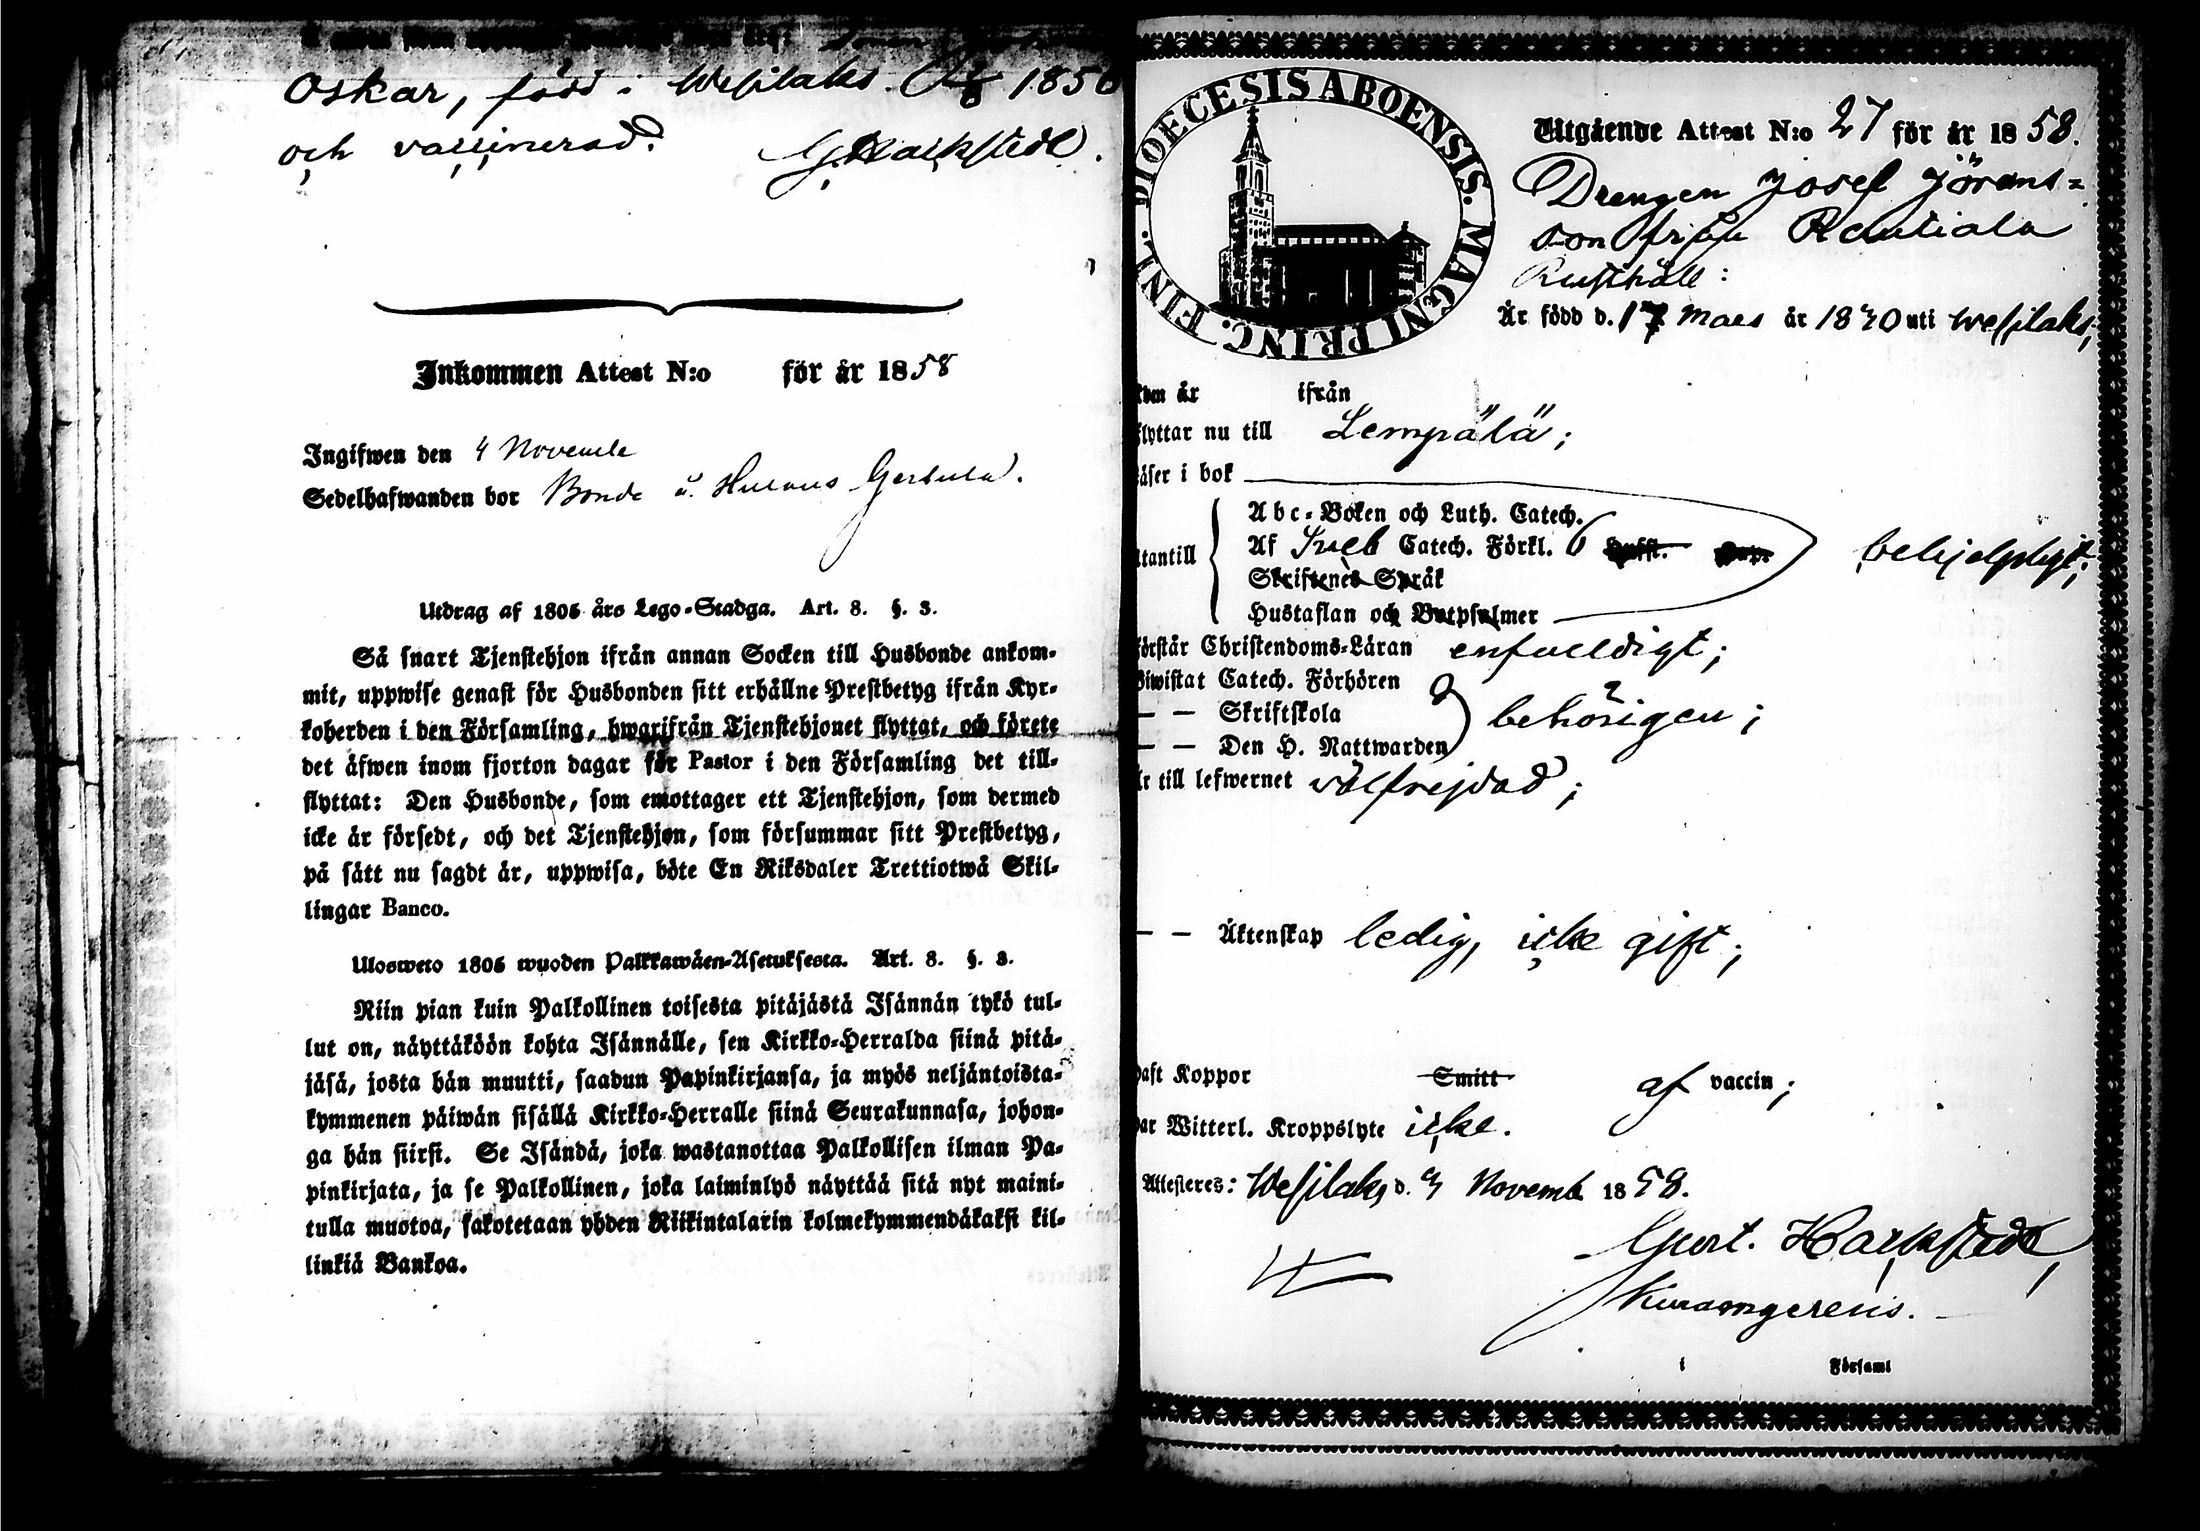 Oskar, född i Wesilaks 1856
och vaccinerad. G. Hackstedt.
Inkommen Attest N:o för år 1858
Ingifwen den 4 Novemb
Sedelhafwanden bor Bonde
Utdrag af 1805 års Lego-Stadga. Art. 8. §. 3.
Så snart Tjenstehjon ifrån annan Socken till Husbonde ankom-
mit, uppwise genast för Husbonden sitt erhållne Prestbetyg ifrån Kyr-
koherden i den Församling, hwarifrån Tjenstehjonet flyttat, och förete
det äfwen inom fjorton dagar för Pastor i den Församling det till-
flyttat: Den Husbonde, som emottager ett Tjenstehjon, som dermed
icke är försedt, och det Tjenstehjon, som försummar sitt Prestbetyg,
på sätt nu sagdt är, uppwisa, böte En Riksdaler Trettiotwå Skil-
lingar Banco.
Ulosweto 1805 wuoden Palkkawäen-Asetuksesta. Art. 8. §. 3.
Niin pian kuin Palkollinen toisesta pitäjästä Isännän tykö tul-
lut on, näyttäköön kohta Isännälle, sen Kirkko-Herralda siinä pitä-
jäsä, josta hän muutti, saadun Papinkirjansa, ja myös neljäntoista-
kymmenen päiwän sisällä Kirkko-Herralle siinä Seurakunnasa, johon-
ga hän siirsi. Se Isändä, joka wastanottaa Palkollisen ilman Pa-
pinkirjata, ja se Palkollinen, joka laiminlyö näyttää sitä nyt maini-
tulla muotoa, sakotetaan yhden Riikintalarin kolmekymmendäkaksi kil-
linkiä Bankoa.
DIOECESIS ABOENSIS. MAGNI PRINC. FINL.
Utgående Attest N:o 27 för år 1858.
Drengen Josef Jörans-
son från Rautiala
Rusthåll:
Är född d. 17 Mars år 1840 uti Wesilaks,
är ifrån
flyttar nu till Lempälä;
i bok
Abc-Boken och Luth. Catech.
Af Sveb Catech. Förkl. behjelpligt;
Utantill
Skriftenes Språk
Hustaflan och Botpsalmer
Förstår Christendoms-Läran enfaldigt;
Biwistat Catech. Förhören
— — Skriftskola behörigen;
— — Den H. Nattwarden
Är till lefwernet välfrejdad;
— — Äktenskap ledig, icke gift;
Haft Koppor Smitt af vaccin;
Har Witterl. Kroppslyte icke.
Attesteres: Wesilaks d. 3 Novemb 1858.
Gust. Hackstedt,
i Församl